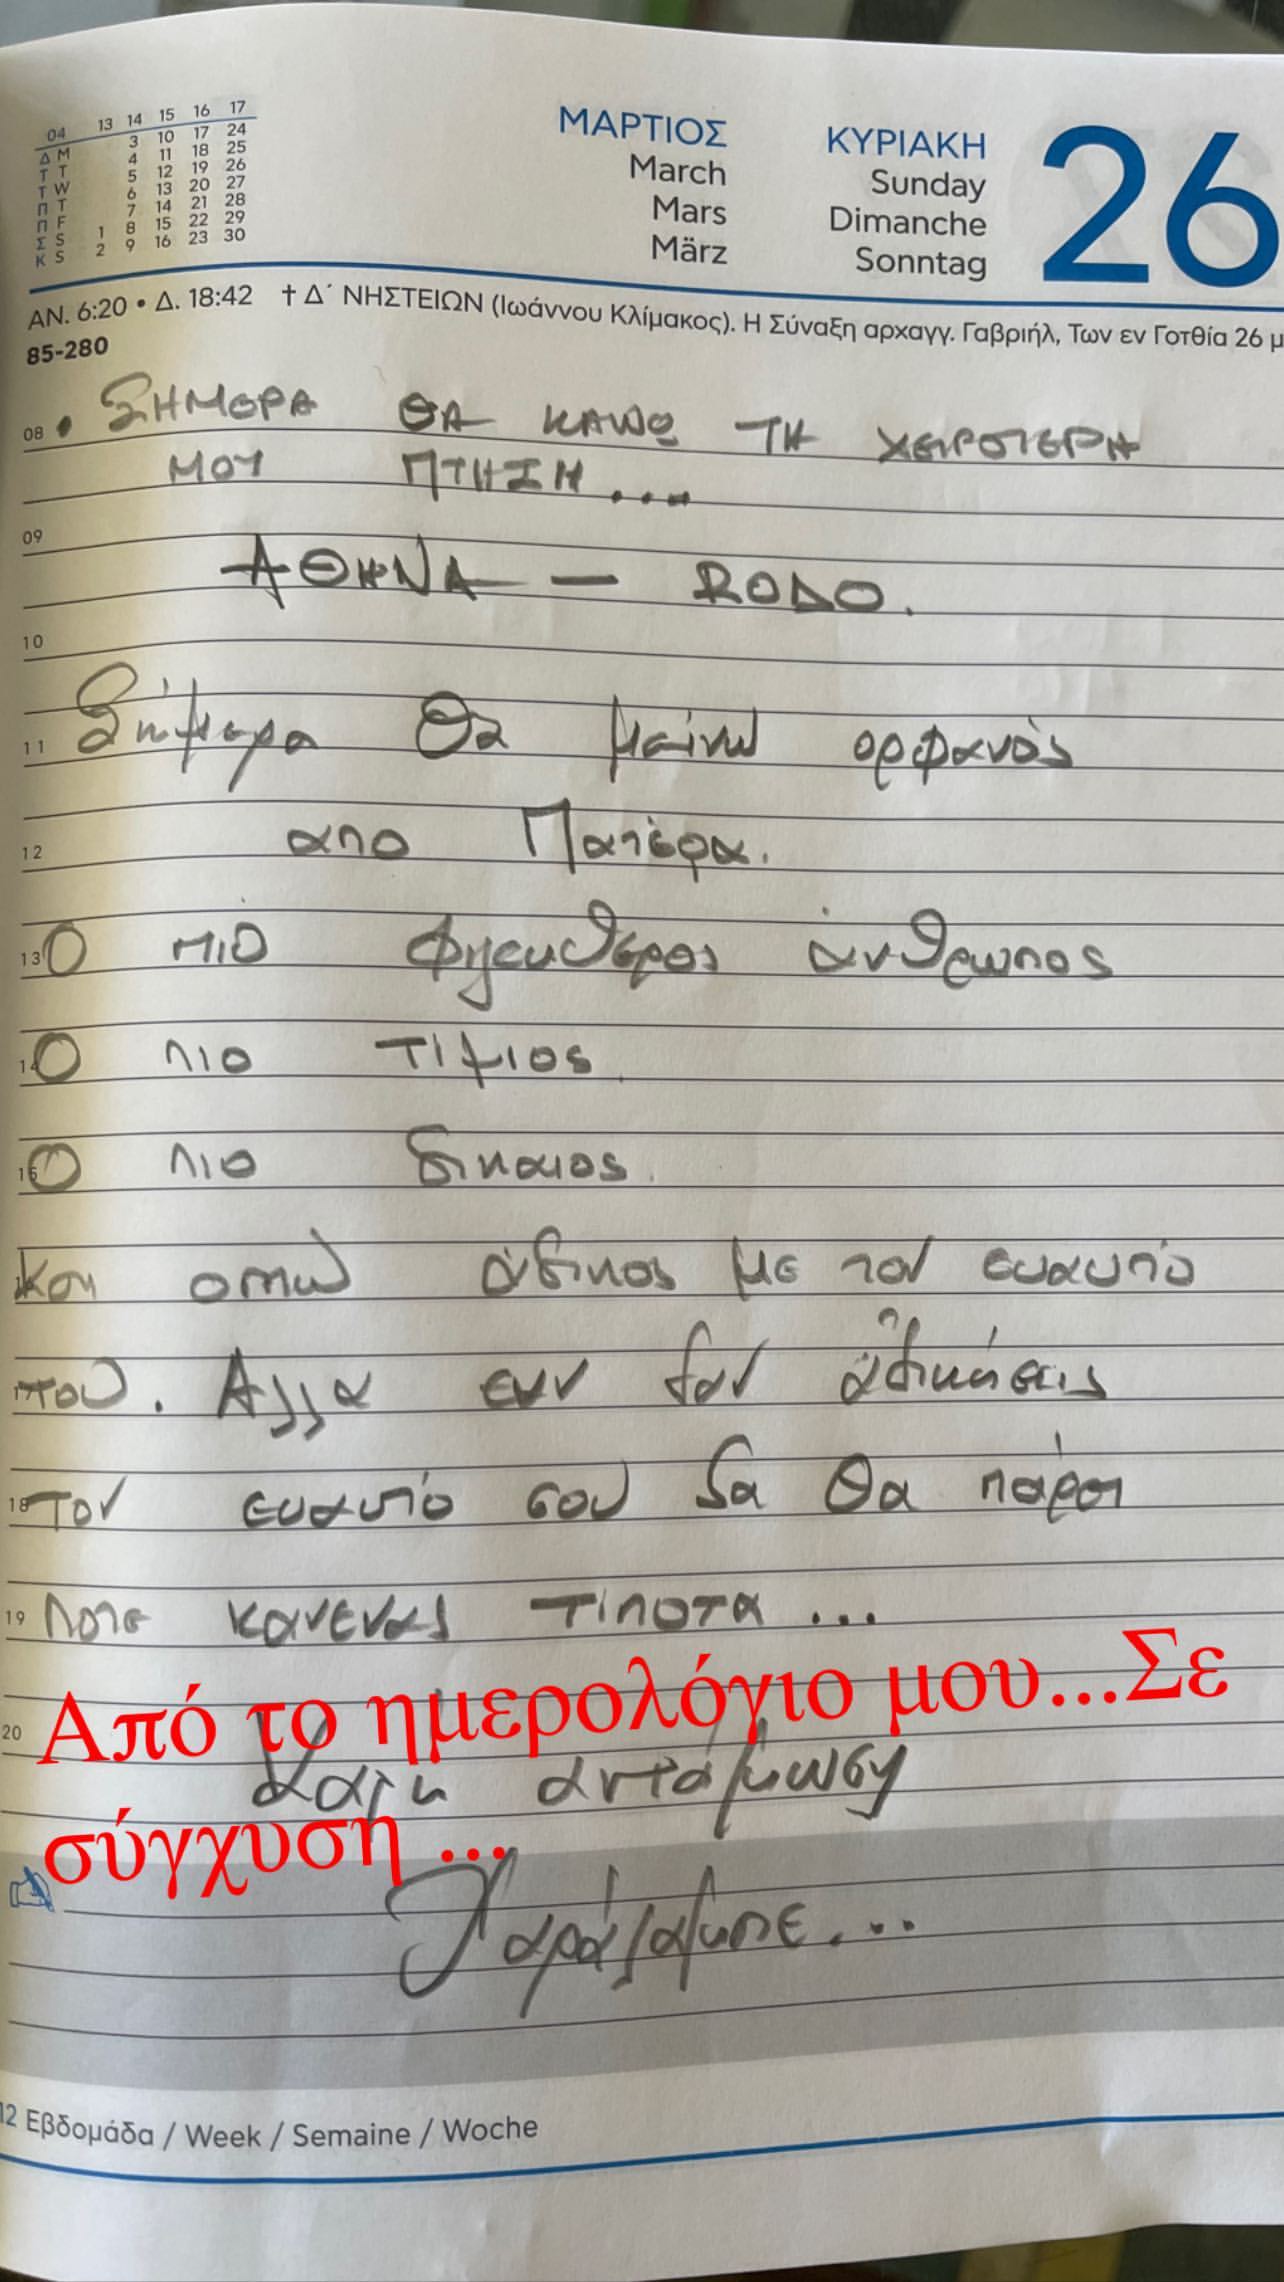 04 13 14 15 16 17
Δ M 3 10 17 24
Τ T 4 11 18 25
Τ W 5 12 19 26
Π T 6 13 20 27
Π F 7 14 21 28
Σ S 1 8 15 22 29
Κ S 2 9 16 23 30
ΜΑΡΤΙΟΣ
March
Mars
März
ΚΥΡΙΑΚΗ
Sunday
Dimanche
Sonntag
26
ΑΝ. 6:20 • Δ. 18:42 † Δ΄ ΝΗΣΤΕΙΩΝ (Ιωάννου Κλίμακος). Η Σύναξη αρχαγγ. Γαβριήλ, Των εν Γοτθία 26 μ
85-280
08 • ΣΗΜΕΡΑ ΘΑ ΚΑΝΩ ΤΗ ΧΕΙΡΟΤΕΡΗ
ΜΟΥ ΠΤΗΣΗ....
09
ΑΘΗΝΑ — RΟΔΟ.
10
11 Σήμερα Θα μείνω ορφανός
12 απο Πατέρα.
13 Ο πιό άνθρωπος
14 Ο πιο τίμιος.
15 Ο πιο δικαιος.
άδικος με τον ευαυτό
του. Αλλα εαν δεν αδικήσεις
18 Τον ευαυτό σου δα θα πάρει
19 ποτε κανενας τίποτα ...
Από το ημερολόγιο μου...Σε
20
Καλη αντάμωση
σύγχυση ...
Χαράλαμπε...
12 Εβδομάδα / Week / Semaine / Woche